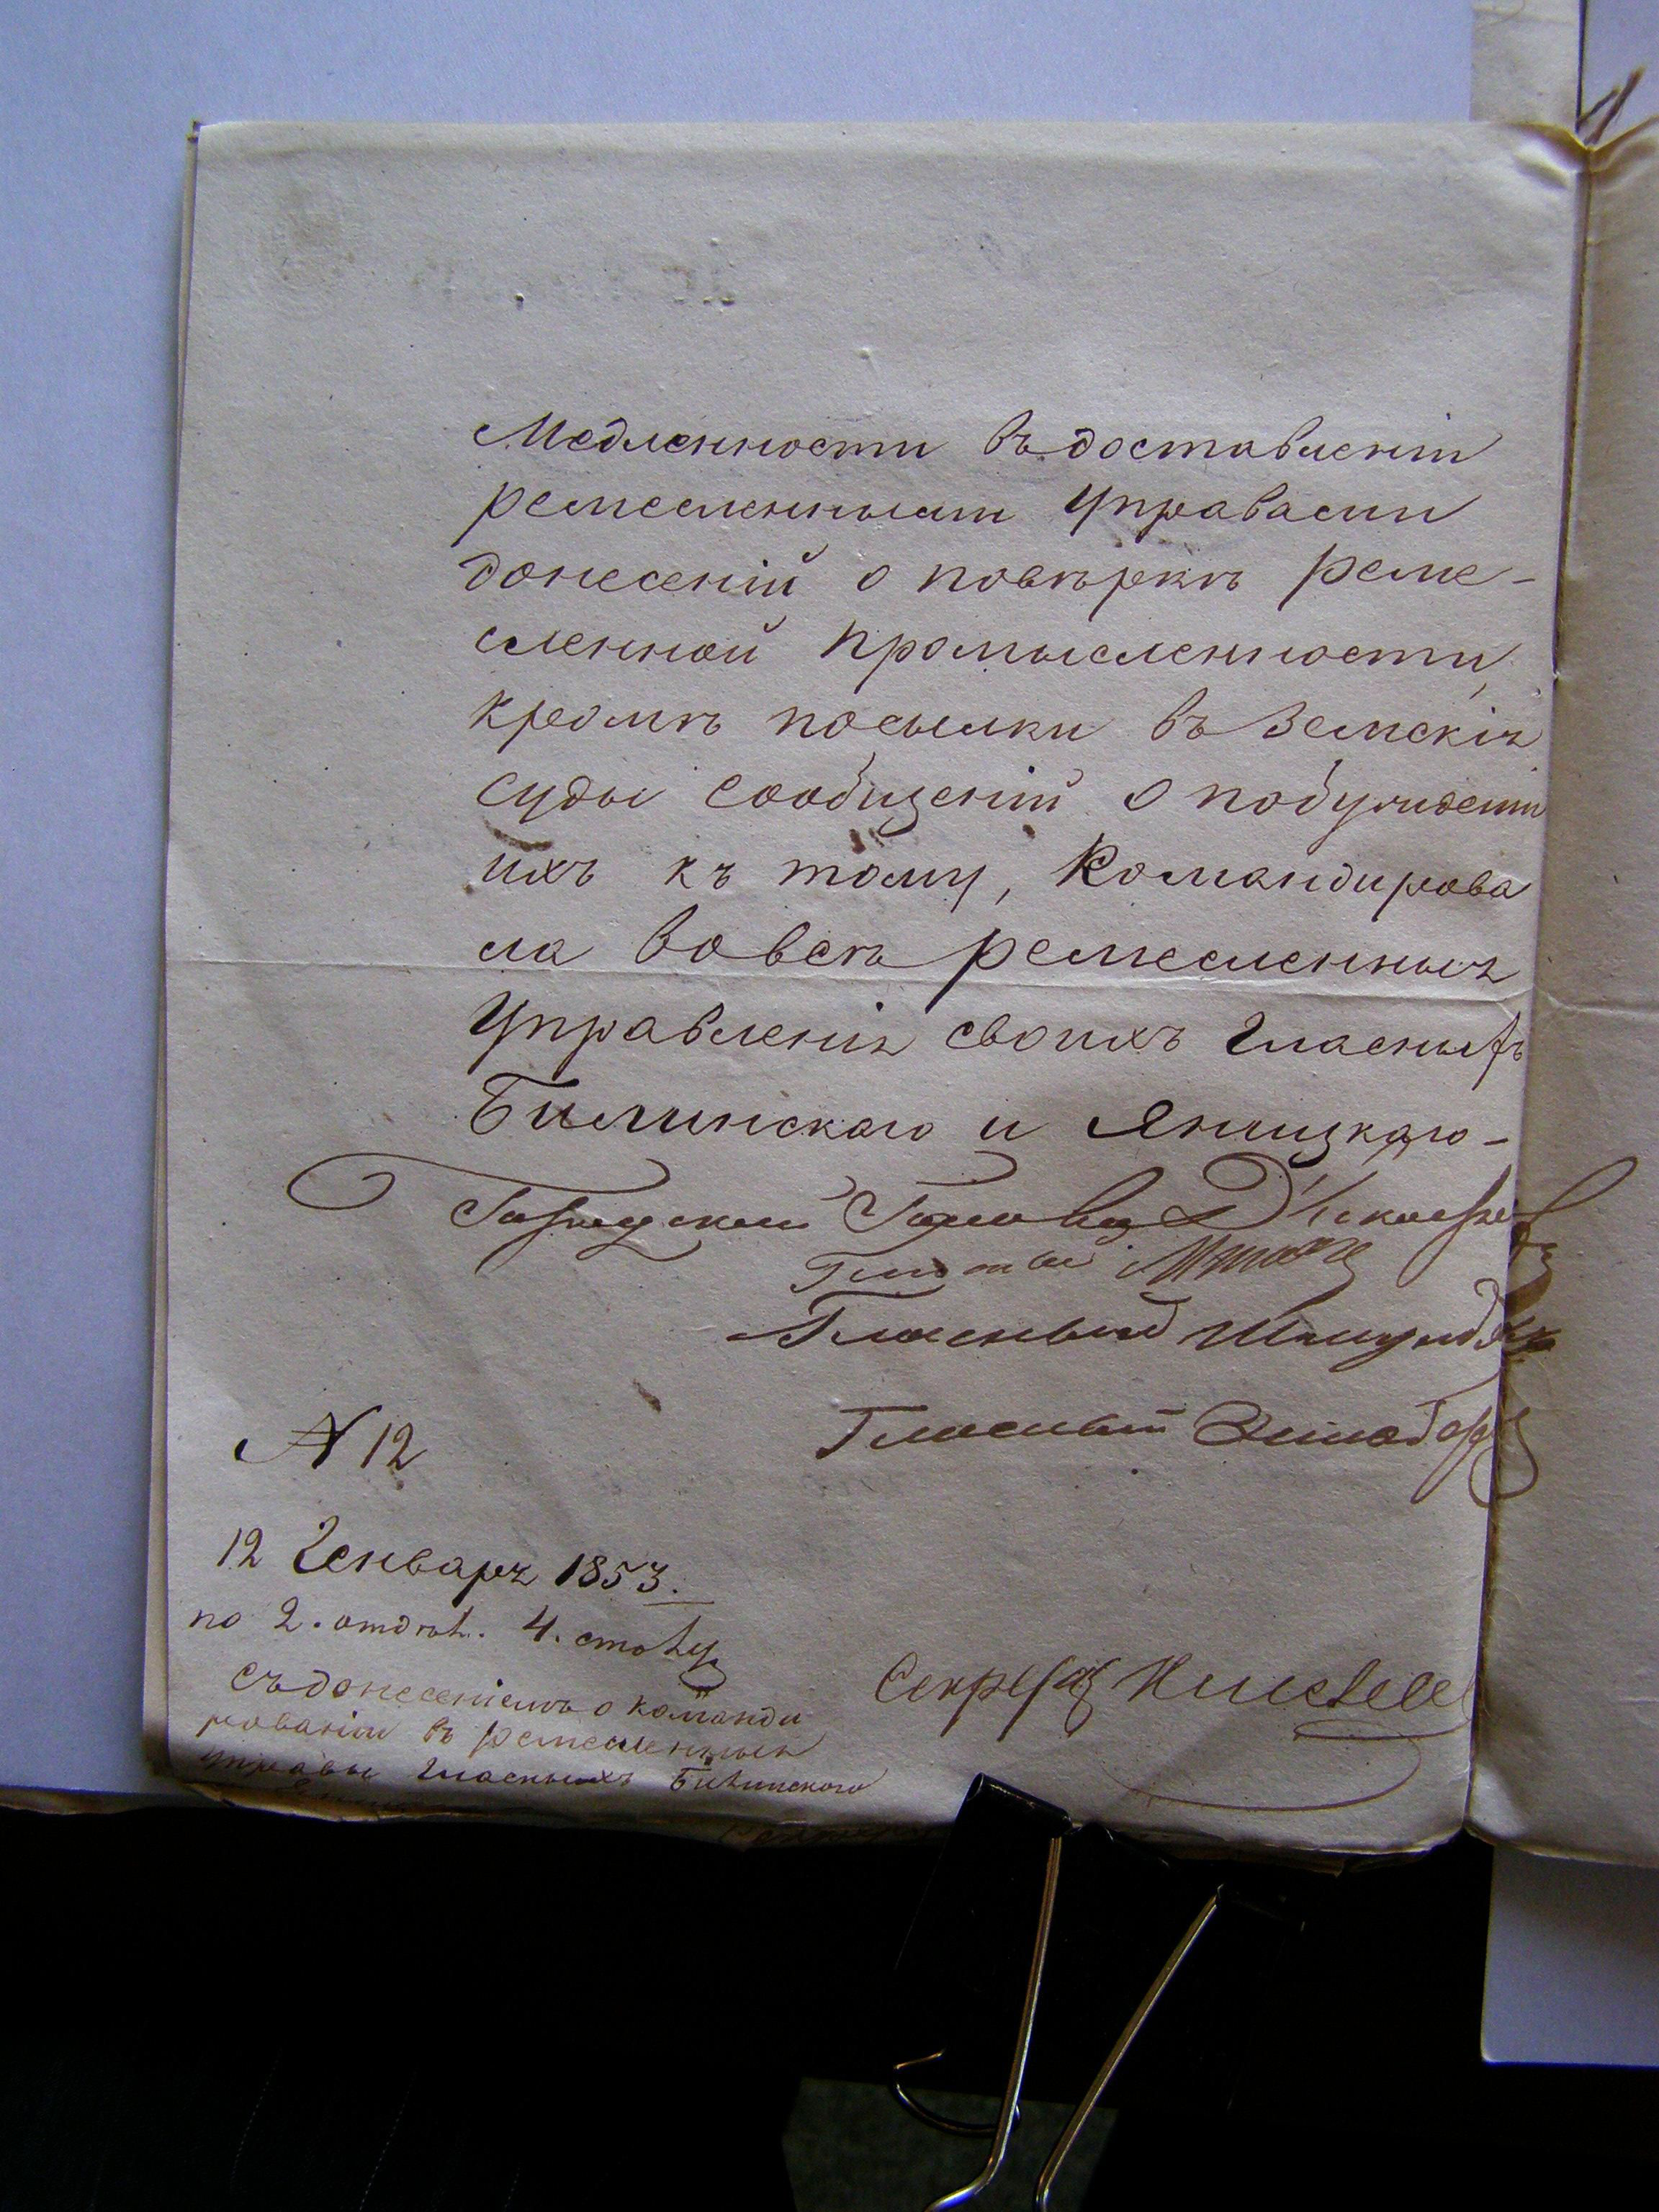 Медленности въ доставленіи
ремесленными Управами
донесеній о повѣркѣ реме-
сленной промысленности,
кромѣ посылки въ Земскія
суды сообщеній о побужденіи
ихъ къ тому, Командирова
ла во всѣ ремесленныя
Управленія своихъ Гласныхъ
Билинскаго и Яницкаго-
Городской Голова
Гласный
Гласный
Гласный
N 12
12 Генваря 1853.
по 2. отдѣл. 4. столу
съ донесеніемъ о команди
рованіи въ ремесленныя
управы Гласныхъ Билинскаго
Секретарь